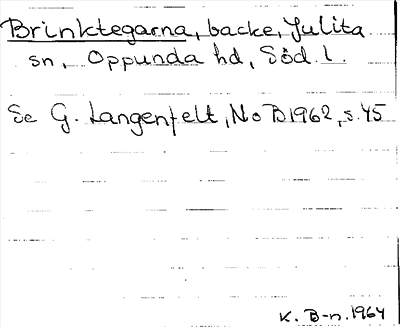 Brinktegarna, backe, Julita
sn, Oppunda hd, Söd. l.
Se G. Langenfelt, NoB 1962, s. 45
K. B-n. 1964